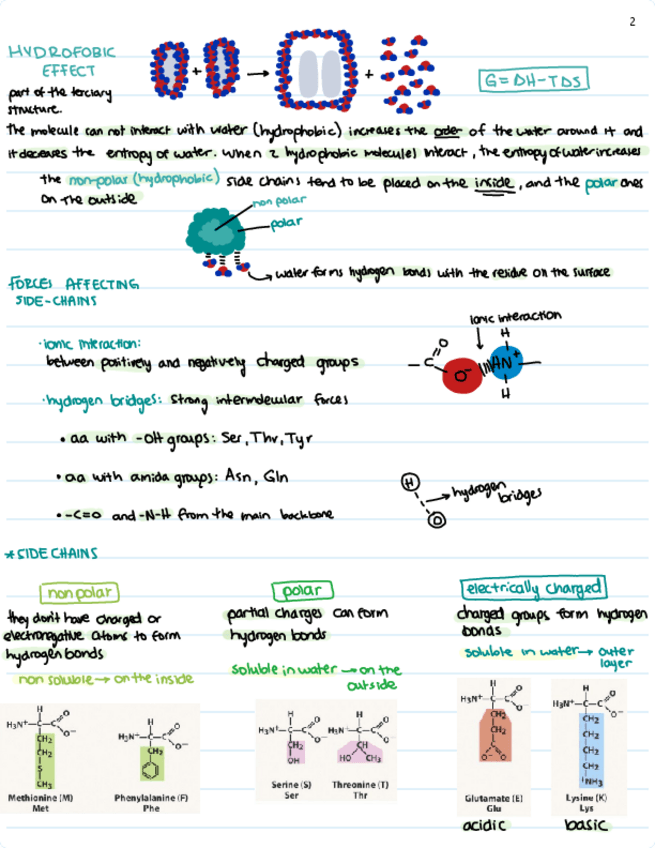 2
HYDROFOBIC
EFFECT
part of the terciary
structure.
+
+
G = ΔH - TΔS
The molecule can not interact with water (hydrophobic) increases the order of the water around it and
it deceases the entropy of water. When 2 hydrophobic molecules interact, the entropy of water increases
the non-polar (hydrophobic) side chains tend to be placed on the inside, and the polar ones
on the outside
non polar
polar
water forms hydrogen bonds with the residue on the surface
FORCES AFFECTING
SIDE-CHAINS
·ionic interaction:
between positively and negatively charged groups
ionic interaction
H
O
-C
O-
HN+
H
·hydrogen bridges: strong intermolecular forces
• aa with -OH groups: Ser, Thr, Tyr
• aa with amida groups: Asn, Gln
• -C=O and -N-H from the main backbone
H
hydrogen
bridges
O
* SIDE CHAINS
non polar
they don't have charged or
electronegative atoms to form
hydrogen bonds
non soluble → on the inside
polar
partial charges can form
hydrogen bonds
soluble in water → on the
outside
electrically charged
charged groups form hydrogen
bonds
soluble in water → outer
layer
H
H3N+-C-C
O
O-
CH2
CH2
S
CH3
Methionine (M)
Met
H
H3N+-C-C
O
O-
CH2
Phenylalanine (F)
Phe
H
H3N+-C-C
O
O-
CH2
OH
Serine (S)
Ser
H
H3N+-C-C
O
O-
CH
HO CH3
Threonine (T)
Thr
H
H3N+-C-C
O
O-
CH2
CH2
C
O- O
Glutamate (E)
Glu
acidic
H
H3N+-C-C
O
O-
CH2
CH2
CH2
CH2
+NH3
Lysine (K)
Lys
basic